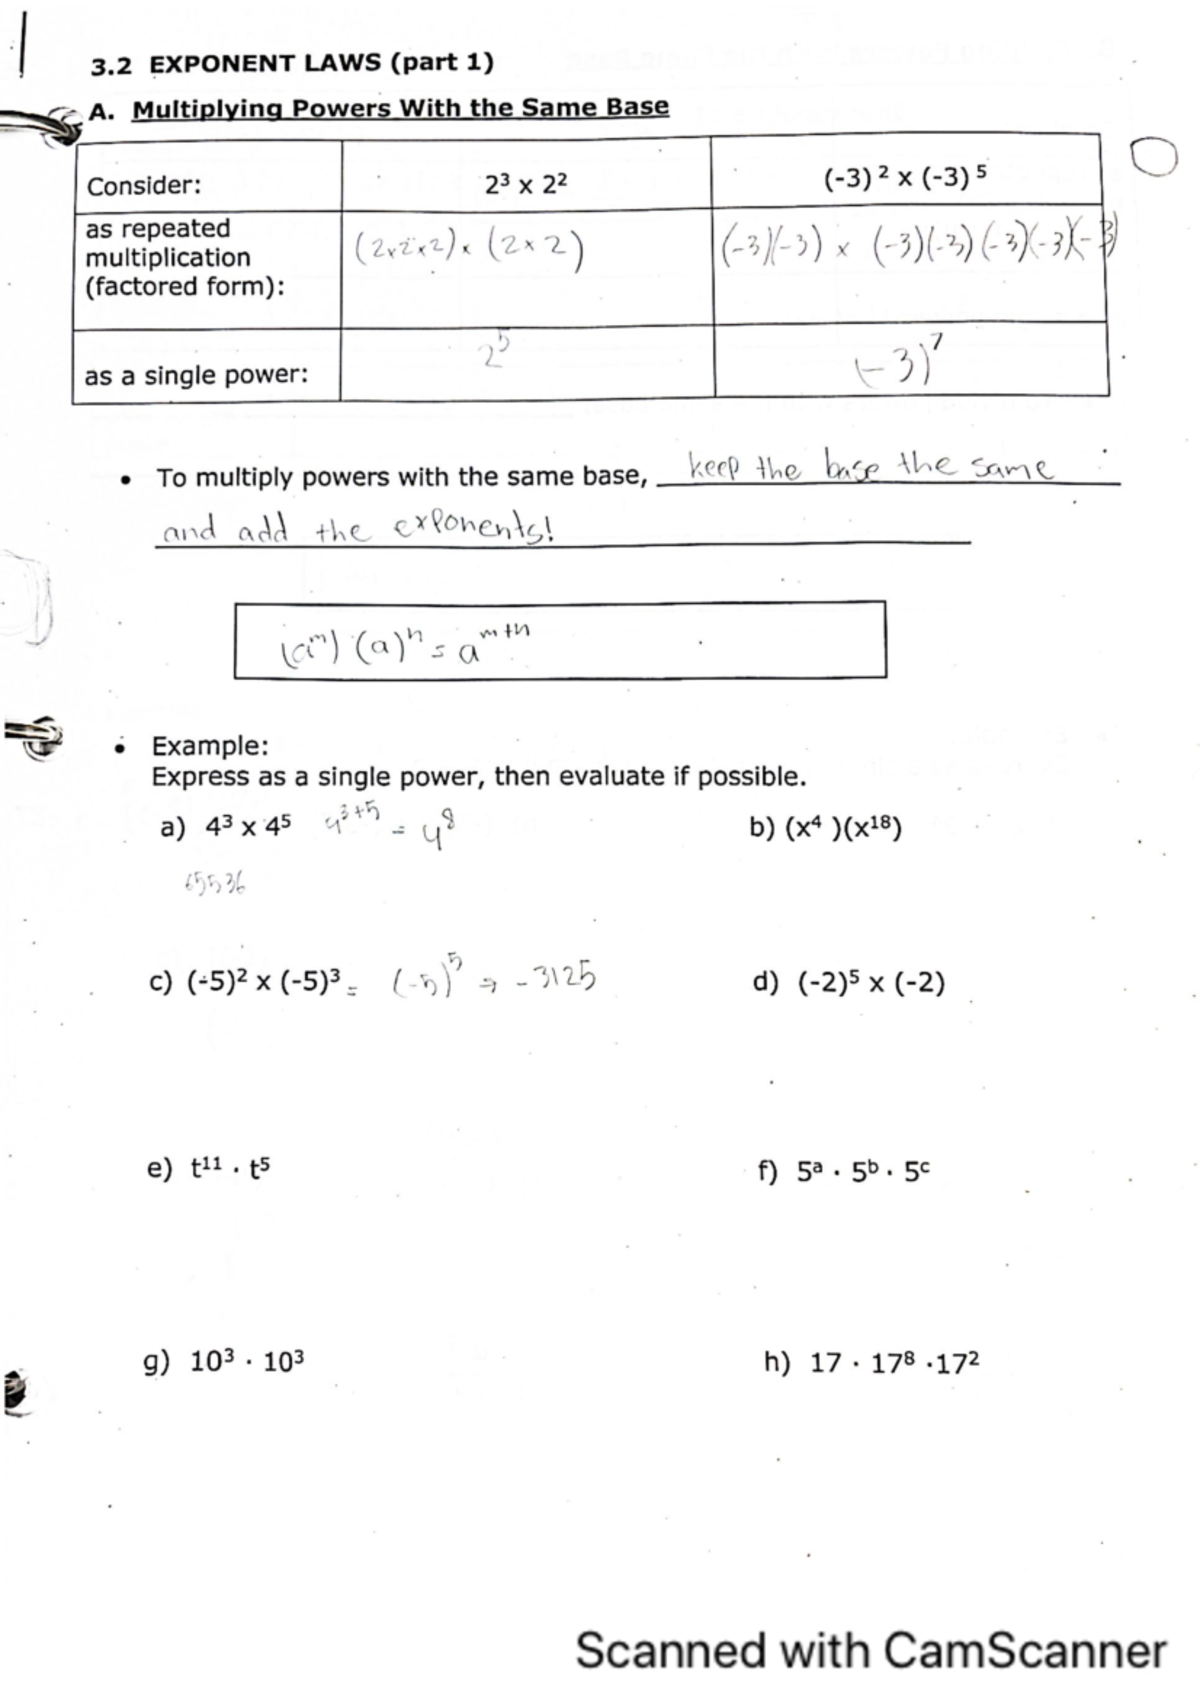 3.2 EXPONENT LAWS (part 1)
A. Multiplying Powers With the Same Base
Consider: 2³ x 2² (-3) ² x (-3) ⁵
as repeated
multiplication
(factored form): (2x2x2) x (2x2) (-3)(-3) x (-3)(-3)(-3)(-3)(-3)
as a single power: 2⁵ (-3)⁷
• To multiply powers with the same base, keep the base the same
and add the exponents!
(aᵐ) (a)ⁿ = aᵐ⁺ⁿ
• Example:
Express as a single power, then evaluate if possible.
a) 4³ x 4⁵ 4³⁺⁵ = 4⁸ b) (x⁴ )(x¹⁸)
65536
c) (-5)² x (-5)³ = (-5)⁵ → -3125 d) (-2)⁵ x (-2)
e) t¹¹ . t⁵ f) 5ᵃ . 5ᵇ . 5ᶜ
g) 10³ . 10³ h) 17 . 17⁸ .17²
Scanned with CamScanner